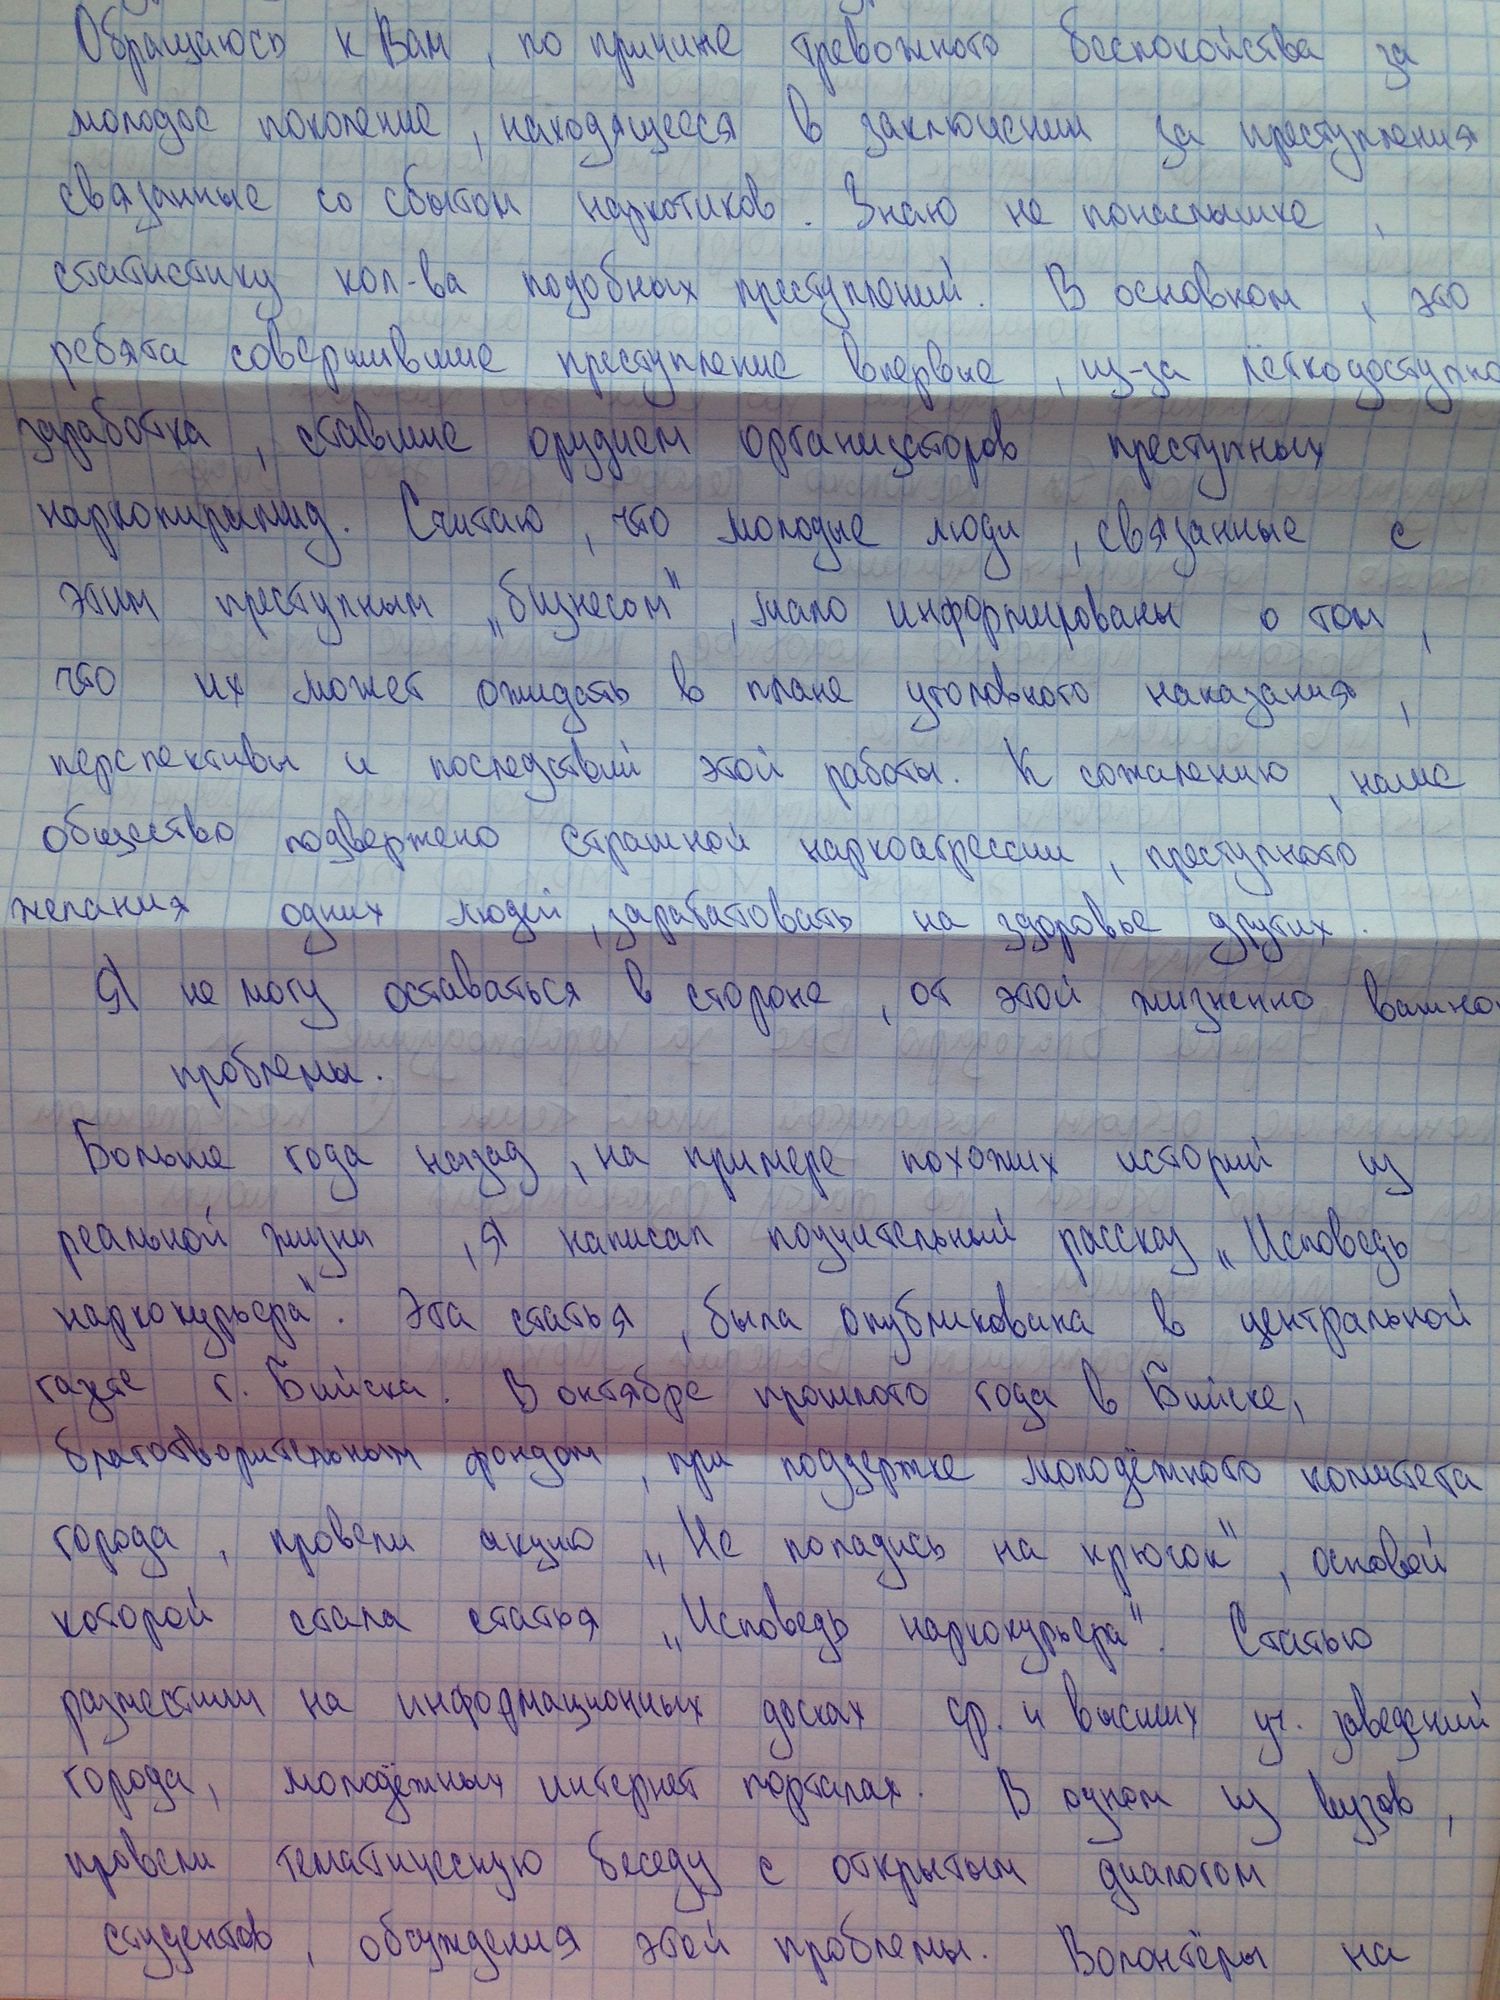 Обращаюсь к Вам, по причине тревожного беспокойства за
молодое поколение, находящееся в заключении за преступления
связанные со сбытом наркотиков. Знаю не понаслышке,
статистику кол-ва подобных преступлений. В основном, это
ребята совершившие преступление впервые, из-за легкодоступно
заработка, ставшие орудием организаторов преступных
наркопирамид. Считаю, что молодые люди, связанные с
этим преступным „бизнесом", мало информированы о том,
что их может ожидать в плане уголовного наказания,
перспективы и последствий этой работы. К сожалению, наше
общество подвержено страшной наркоагрессии, преступного
желания одних людей, зарабатовать на здоровье других.
Я не могу оставаться в стороне, от этой жизненно важно
проблемы.
Больше года назад, на примере похожих историй из
реальной жизни, я написал поучительный рассказ „Исповедь
наркокурьера". Эта статья, была опубликована в центральной
газете г. Бийска. В октябре прошлого года в Бийске,
благотворительным фондом, при поддержке молодёжного комитета
города, провели акцию „Не попадись на крючок", основой
которой стала статья „Исповедь наркокурьера". Статью
разместили на информационных досках ср. и высших уч. заведений
города, молодёжных интернет порталах. В одном из вузов,
провели тематическую беседу с открытым диалогом
студентов, обсуждения этой проблемы. Волонтёры на